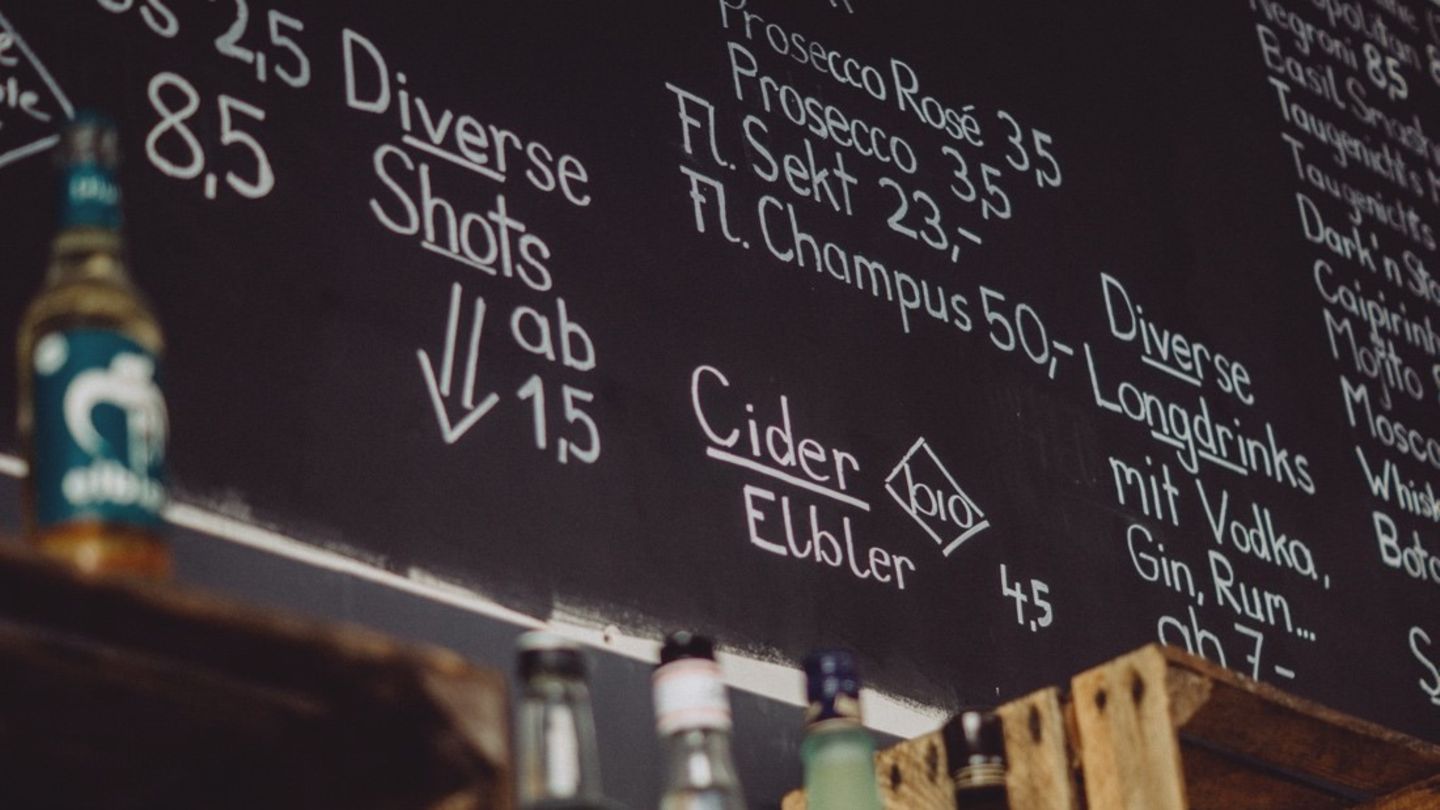 2,5
8,5
Diverse
Shots
ab
1,5
Prosecco Rosé 3,5
Prosecco 3,5
Fl. Sekt 23,-
Fl. Champus 50,-
Cider
bio
Elbler
4,5
Diverse
Longdrinks
mit Vodka,
Gin, Rum...
ab 7,-
Negroni 8,5
Basil Smash
Taugenichts
Taugenichts
Dark'n Sto
Caipirinh
Mojito
Mosco
Whisk
Bota